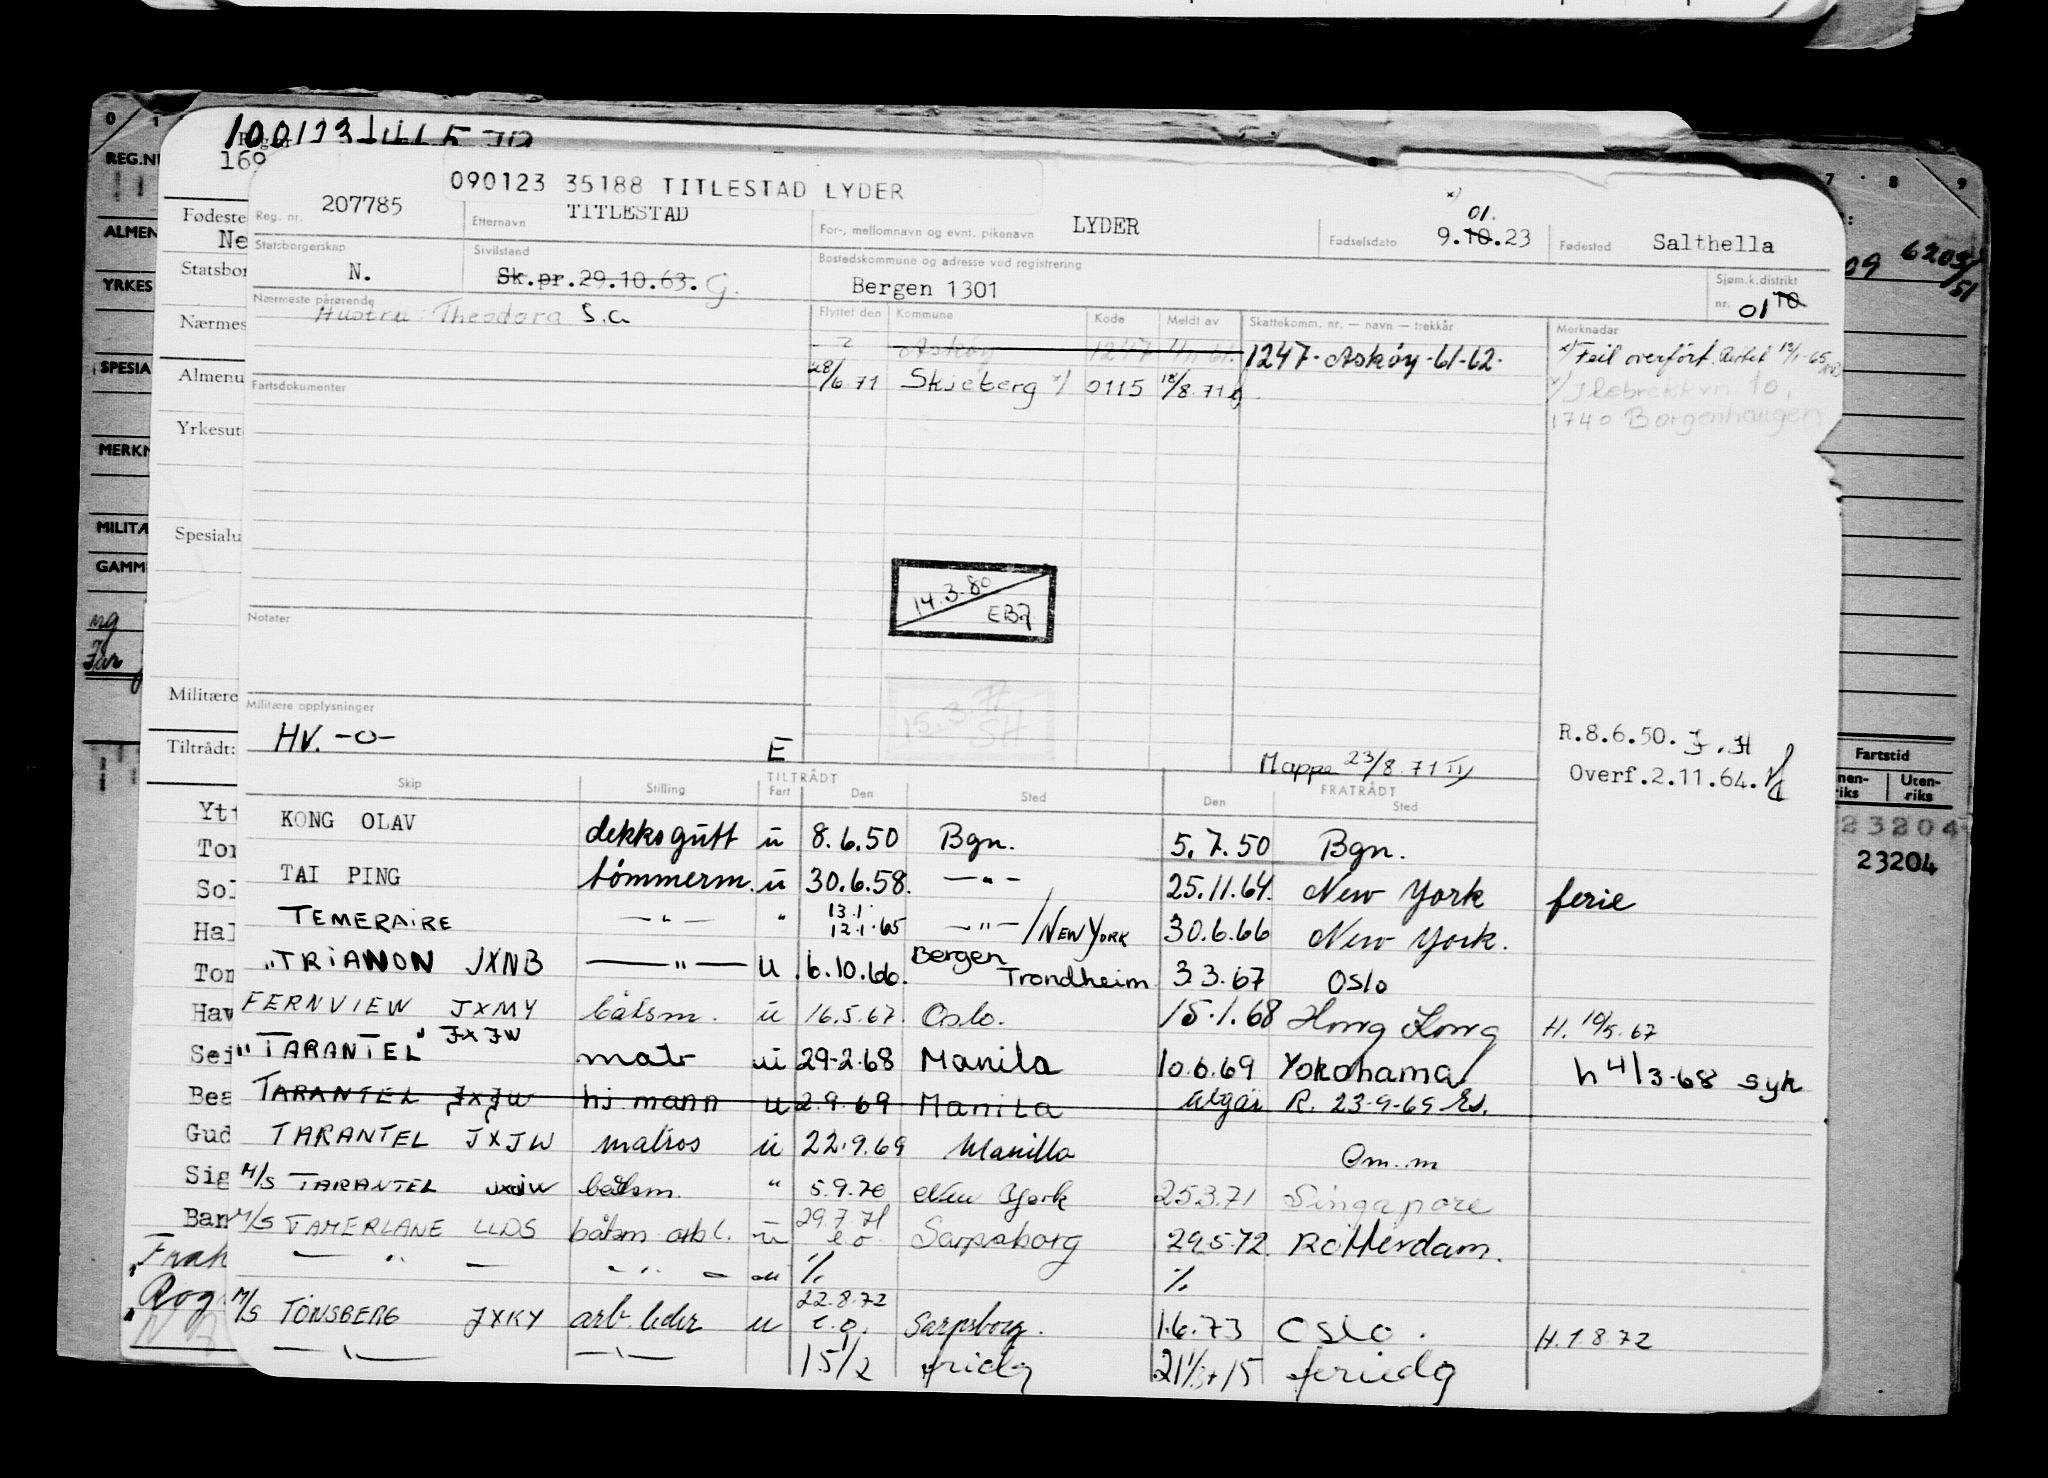 0 1
7 8 9
REG.NR
169
ALMEN
YRKES
SPESIA
MERKN
MILITÆ
GAMM
09 6203/51
Fødeste
Ne
Statsbor
Nærmes
Almenu
Yrkesut
Spesialu
Militære
Tiltrådt:
090123 35188 TITLESTAD LYDER
Reg. nr. 207785
Etternavn TITLESTAD
For-, mellomnavn og evnt. pikenavn LYDER
x) 01.
Fødselsdato 9.10.23
Fødested Salthella
Statsborgerskap N.
Sivilstand Sk.pr.29.10.63. G.
Bostedskommune og adresse ved registrering
Bergen 1301
Sjøm.k.distrikt
nr. 01 10
Nærmeste pårørende
Hustru: Theodora S.a
Flyttet den Kommune Kode Meldt av Skattekomm. nr. — navn — trekkår Merknadar
Askøy 1247 4/11 61. 1247 · Askøy · 61-62 · x) Feil overført. Rettet 19/1-65
28/6.71 Skjeberg x/ 0115 18/8.71
1740 Borgenhaugen
Fartsdokumenter
14.3.80
EB7
Notater
15.3.71
SH
Militære opplysninger
HV. -0-
E
Mappe 23/8.71
R.8.6.50.
Overf.2.11.64.
Skip Stilling TILTRÅDT Fart Den Sted FRATRÅDT Den Sted
KONG OLAV dekksgutt u 8.6.50 Bgn. 5.7.50 Bgn.
TAI PING tømmerm. u 30.6.58. —"— 25.11.64. New York ferie
TEMERAIRE —"— " 13.1 12.1.65 —"—/NEW YORK 30.6.66 New York.
"TRIANON JXNB —"— u 6.10.66. Bergen Trondheim 3.3.67 Oslo
FERNVIEW JXMY båtsm. u 16.5.67. Oslo. 15.1.68 Hong Kong H. 10/5.67
"TARANTEL" JXJW matr u 29-2.68 Manila 10.6.69 Yokohama h 4/3-68 syk
TARANTEL JXJW hj.mann u 2.9.69 Manila utgår R. 23-9-69
TARANTEL JXJW matros u 22.9.69 Manilla Om.m
M/S TARANTEL JXJW båtsm. " 5.9.70 New York 25.3.71 Singapore
M/S TAMERLANE LLDS båtsm arb l. u 29.7 71 e.o. Sarpsborg 29.5.72 Rotterdam.
— " — — " — u % %
M/S TØNSBERG JXKY arb.leder u 22.8.72 e.o. Sarpsborg. 1.6.73 Oslo. H.1872
15/2
Ytt
Tor
Sol
Hal
Ton
Hav
Sei
Bea
Gud
Sig
Ban
Frah
Rog
Fartstid
nen-riks Uten-riks
23204
23204